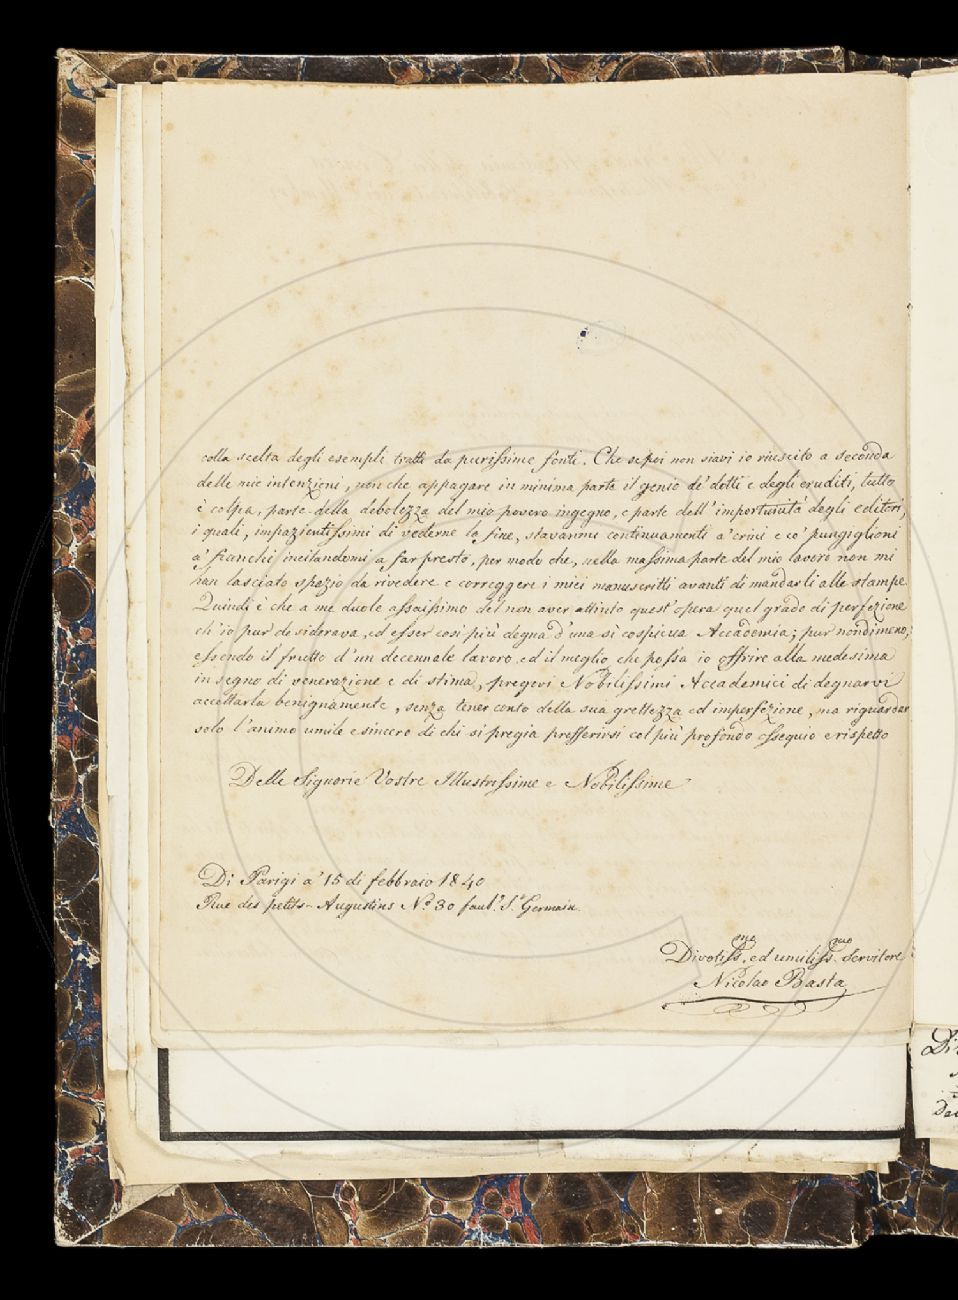 colla scelta degli esempli tratti da purissime fonti. Che se poi non siavi io riuscito a seconda
delle mie intenzioni, non che appagare in minima parte il genio de' dotti e degli eruditi, tutto
è colpa, parte della debolezza del mio povero ingegno, e parte dell'importunità degli editori,
i quali, impazientissimi di vederne la fine, stavanmi continuamenti a' crini e co' pungiglioni
a' fianchi incitandomi a far presto, per modo che, nella massima parte del mio lavoro non mi
han lasciato spazio da rivedere e correggere i miei manuscritti avanti di mandarli alle stampe.
Quindi è che a me duole assaissimo del non aver attinto quest'opera quel grado di perfezione
ch'io pur desiderava, ed esser così più degna d'una sì cospicua Accademia; pur nondimeno,
essendo il frutto d'un decennale lavoro, ed il meglio che possa io offrire alla medesima
in segno di venerazione e di stima, pregovi Nobilissimi Accademici di degnarvi
accettarla benignamente, senza tener conto della sua grettezza ed imperfezione, ma riguardar
solo l'animo umile e sincero di chi si pregia profferirsi col più profondo ossequio e rispetto
Delle Signorie Vostre Illustrissime e Nobilissime
Di Parigi a' 15 di febbraio 1840
Rue des petits-Augustins No. 30 faub.g St. Germain.
Divotiss.mo ed umiliss.mo Servitore
Nicolao Basta